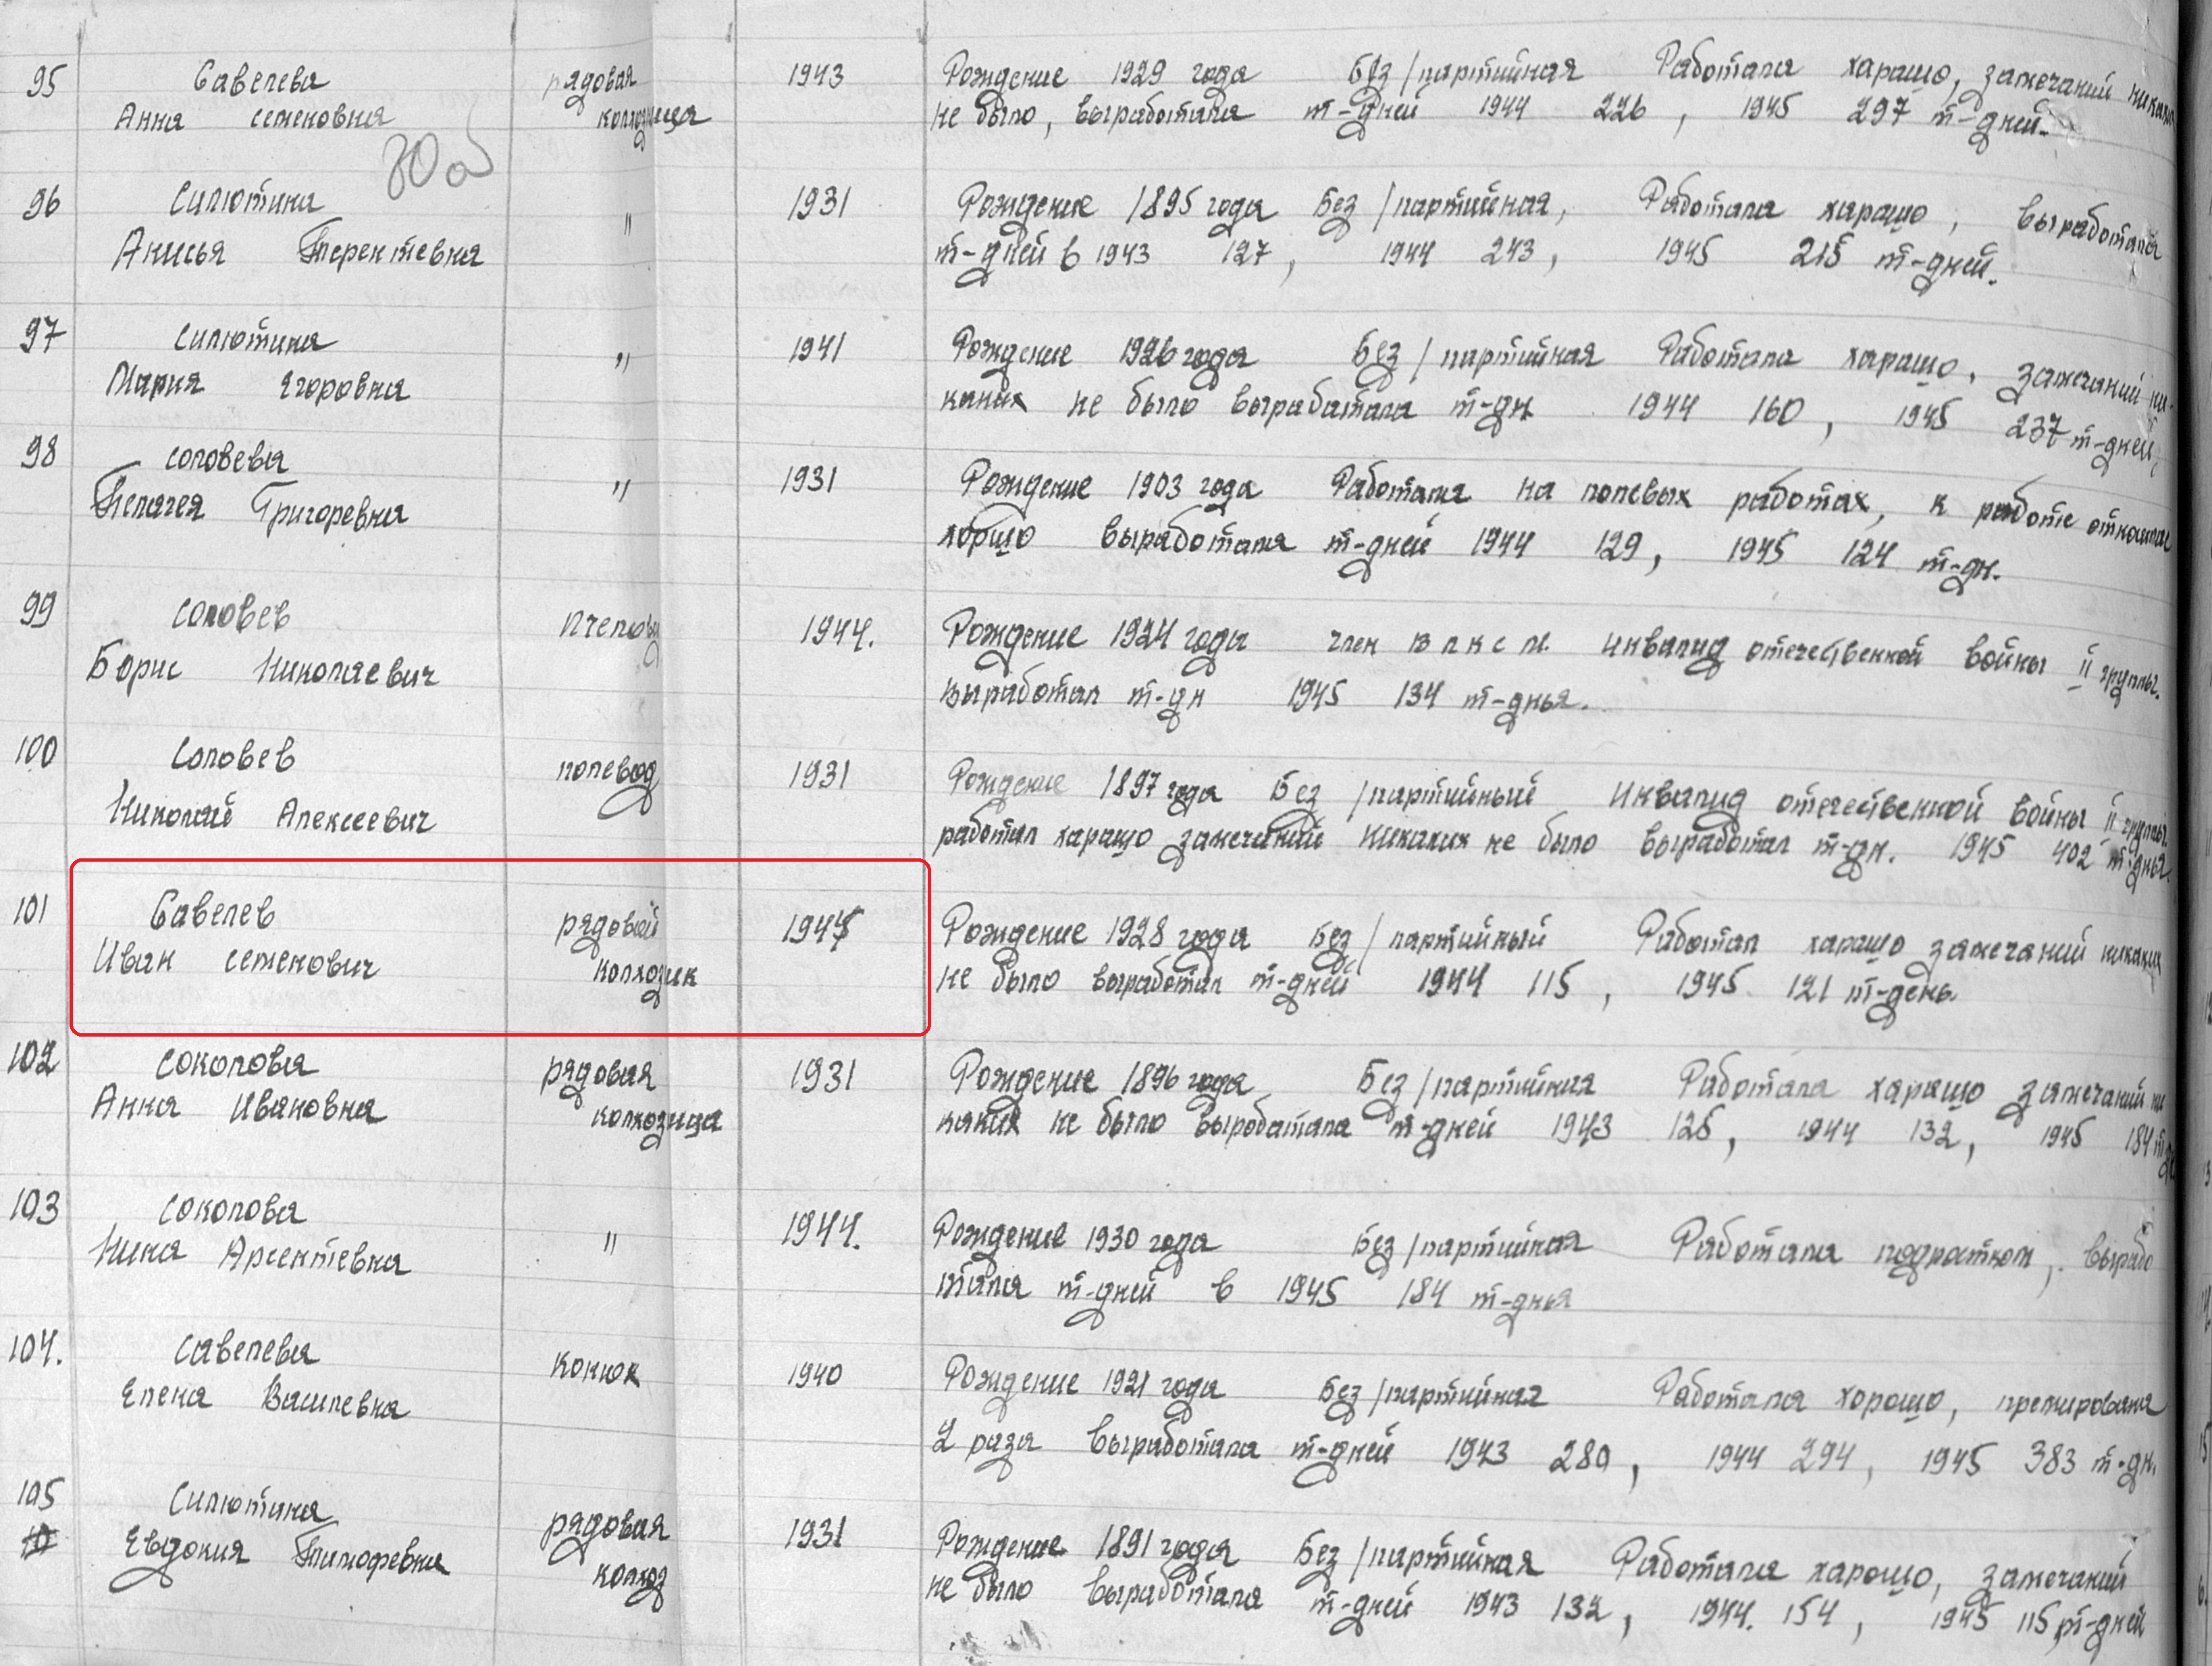 95 Савелева рядовая 1943 Рождение 1929 года Без/партийная Работала харашо, замечаний никаких
Анна семеновна колхозница не было, выработала т-дней 1944 226, 1945 297 т-дней.
80 об
96 Силютина " 1931 Рождение 1895 года Без/партийная, Работала харашо, выработала
Анисья Терентевна т-дней в 1943 127, 1944 243, 1945 215 т-дней.
97 Силютина " 1941 Рождение 1926 года Без/партийная Работала харашо, замечаний ни-
Мария Егоровна каких не было вырабатала т-дн 1944 160, 1945 237 т-дней,
98 соловева " 1931 Рождение 1903 года Работала на полевых работах, к работе
Пелагея Григоревна хоршо выработала т-дней 1944 129, 1945 124 т-дн.
99 Соловев Пчеловод 1944. Рождение 1924 года член в л к с м. инвалид отечественной войны II группы.
Борис Николаевич выработал т-дн 1945 134 т-дня.
100 Соловев полевод 1931 Рождение 1897 года Без/партийный инвалид отечественной войны II группы.
Николай Алексеевич работал харашо замечаний никаких не было выработал т-дн. 1945 402 т-дня.
101 Савелев рядовой 1944 Рождение 1928 года Без/партийный Работал харашо замечаний никаких
Иван семенович колхозник не было выработал т-дней 1944 115, 1945 121 т-день.
102 Соколова рядовая 1931 Рождение 1896 года Без/партийная Работала харашо замечаний ни
Анна Ивановна колхозница каких не было выробатала т-дней 1943 125, 1944 132, 1945 184
103 Соколова " 1944. Рождение 1930 года Без/партийная Работала вырабо
Нина Арсентевна тала т-дней в 1945 184 т-дня
104. Савелева Конюх 1940 Рождение 1921 года Без/партийная Работала хорошо, премирована
Елена Василевна 2 раза выработала т-дней 1943 280, 1944 294, 1945 383 т-дн.
105 Силютина рядовая 1931 Рождение 1891 года Без/партийная Работала харошо, замечаний
Евдокия Тимофевна колхоз не было выработала т-дней 1943 132, 1944. 154, 1945 115 т-дней